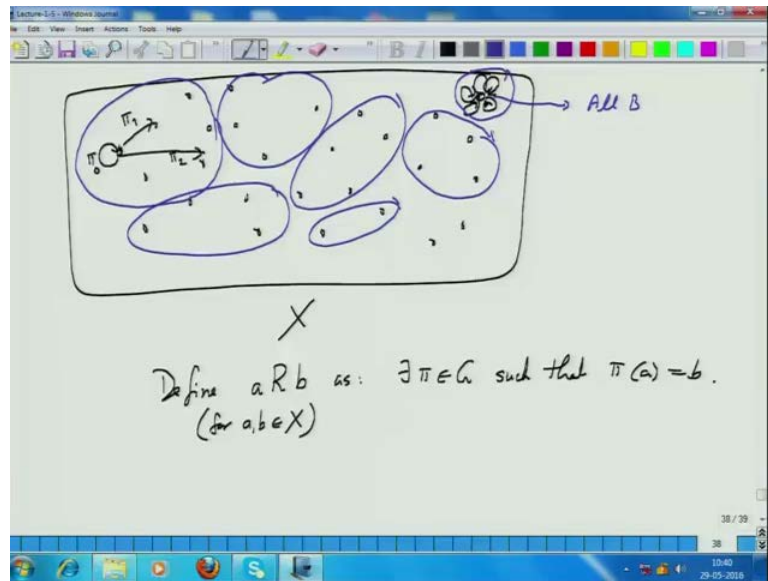 Lecture-1-5 - Windows Journal
File Edit View Insert Actions Tools Help
B I
π₁
π₀
π₂
All B
X
Define aRb as: ∃π∈G such that π(a)=b.
(for a,b∈X)
38 / 39
38
10:40
29-05-2016